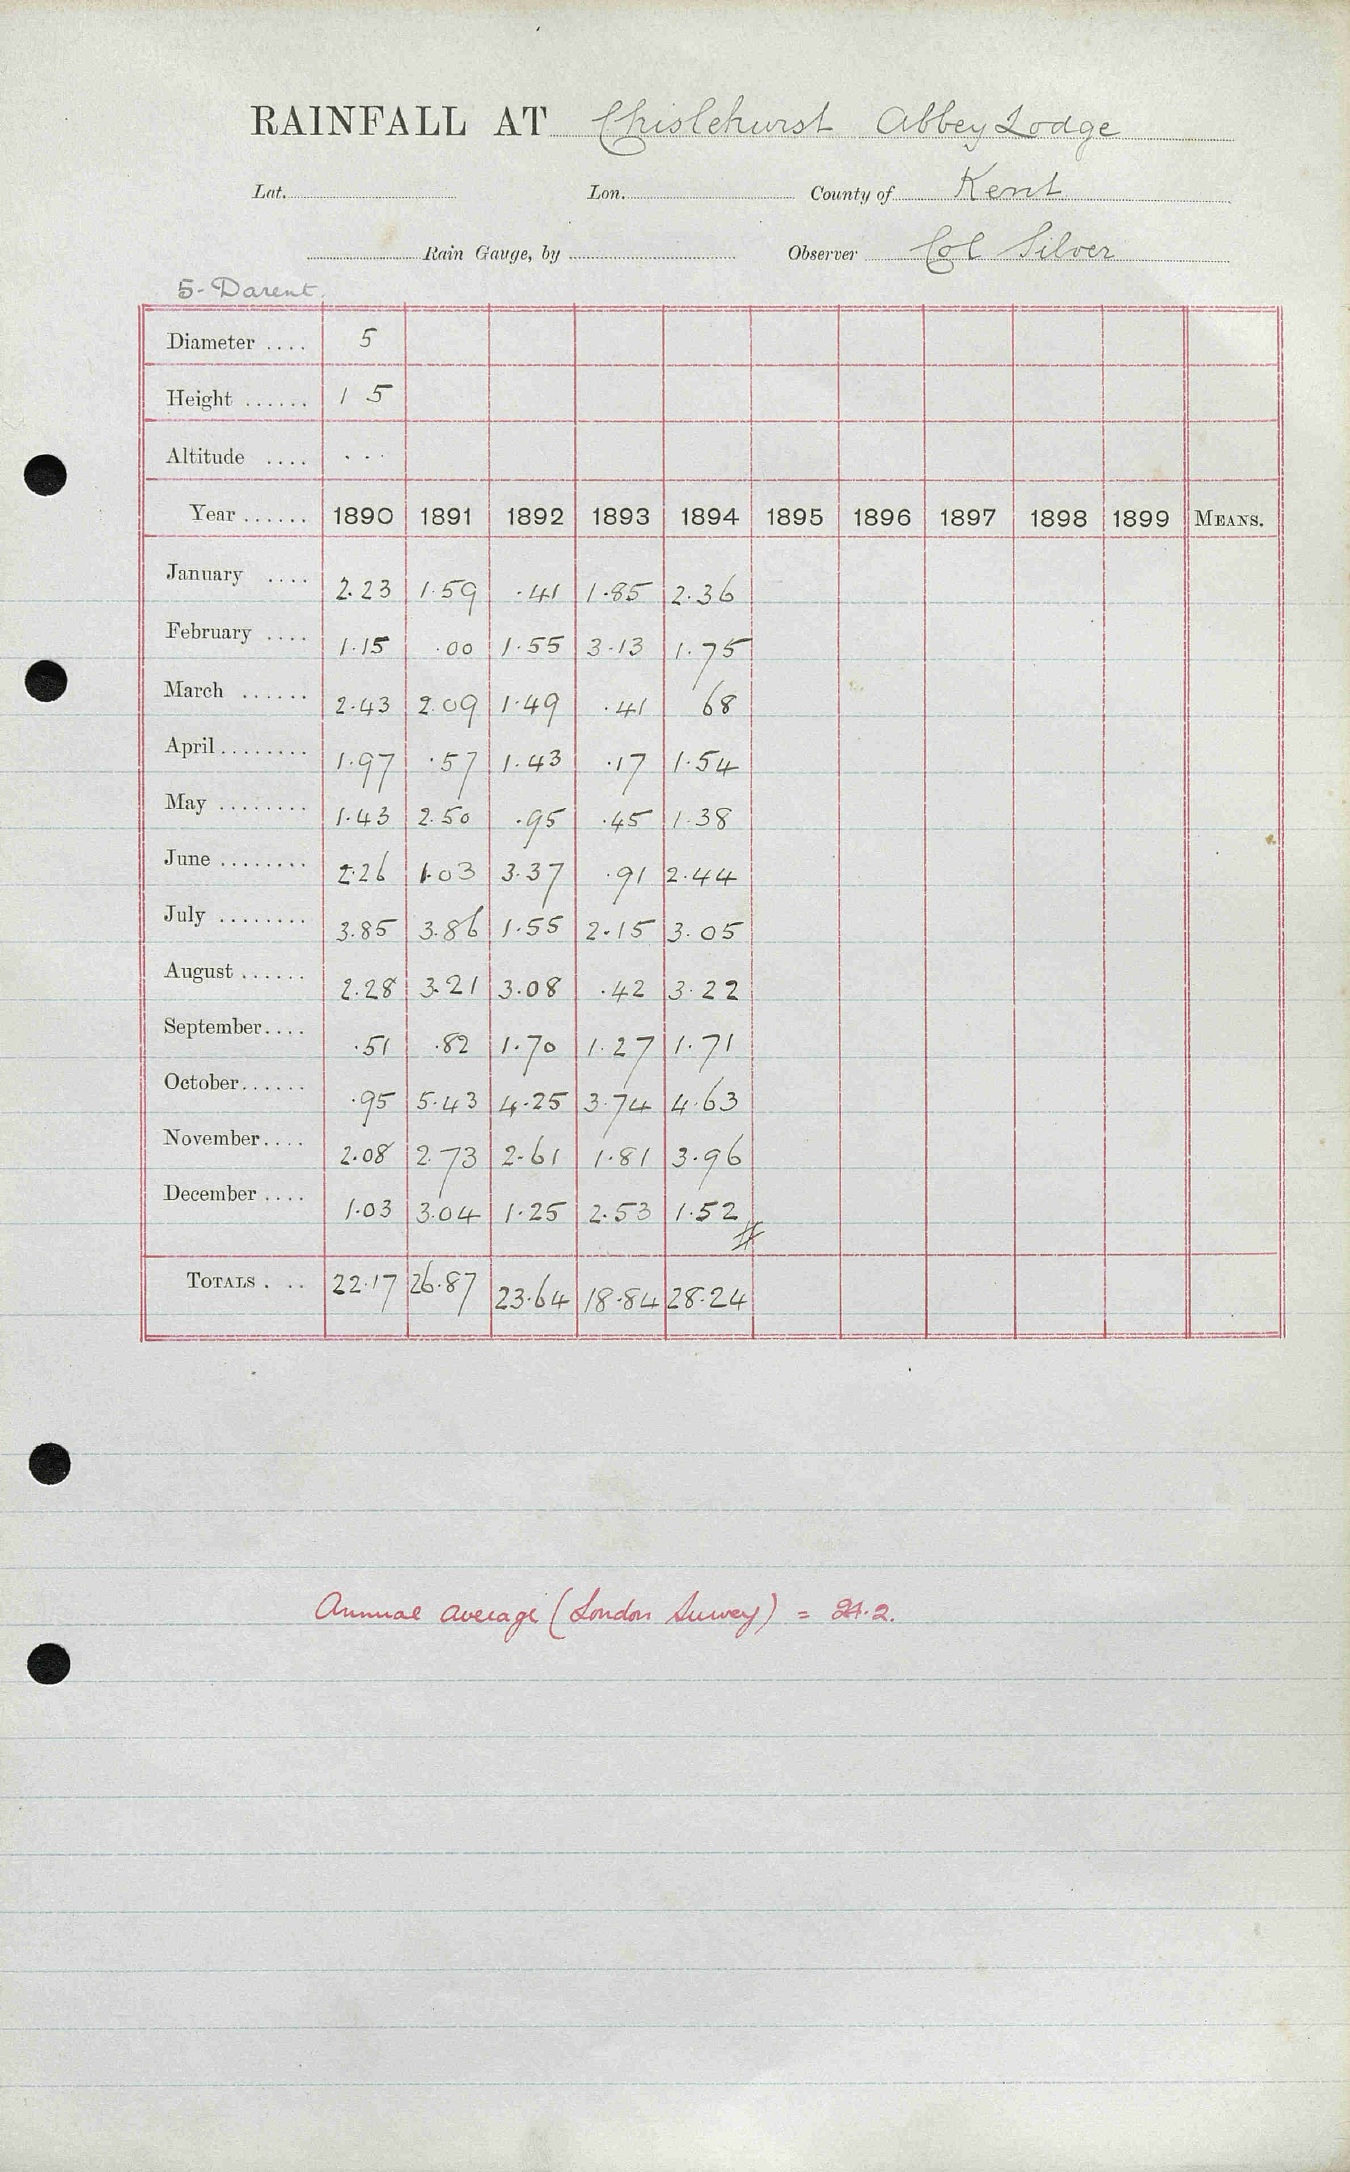 RAINFALL AT Chislehurst Abbey Lodge
Lat. Lon. County of Kent
Rain Gauge, by Observer Col Silver
5-Darent.
Diameter .... 5
Height ...... 1 5
Altitude .... ...
Year ...... 1890 1891 1892 1893 1894 1895 1896 1897 1898 1899 MEANS.
January .... 2.23 1.59 .41 1.85 2.36
February .... 1.15 .00 1.55 3.13 1.75
March ...... 2.43 2.09 1.49 .41 68
April ........ 1.97 .57 1.43 .17 1.54
May ........ 1.43 2.50 .95 .45 1.38
June ........ 2.26 1.03 3.37 .91 2.44
July ........ 3.85 3.86 1.55 2.15 3.05
August ...... 2.28 3.21 3.08 .42 3.22
September.... .51 .82 1.70 1.27 1.71
October...... .95 5.43 4.25 3.74 4.63
November.... 2.08 2.73 2.61 1.81 3.96
December .... 1.03 3.04 1.25 2.53 1.52
#
TOTALS . .. 22.17 26.87 23.64 18.84 28.24
Annual average (London Survey) = 24.2.